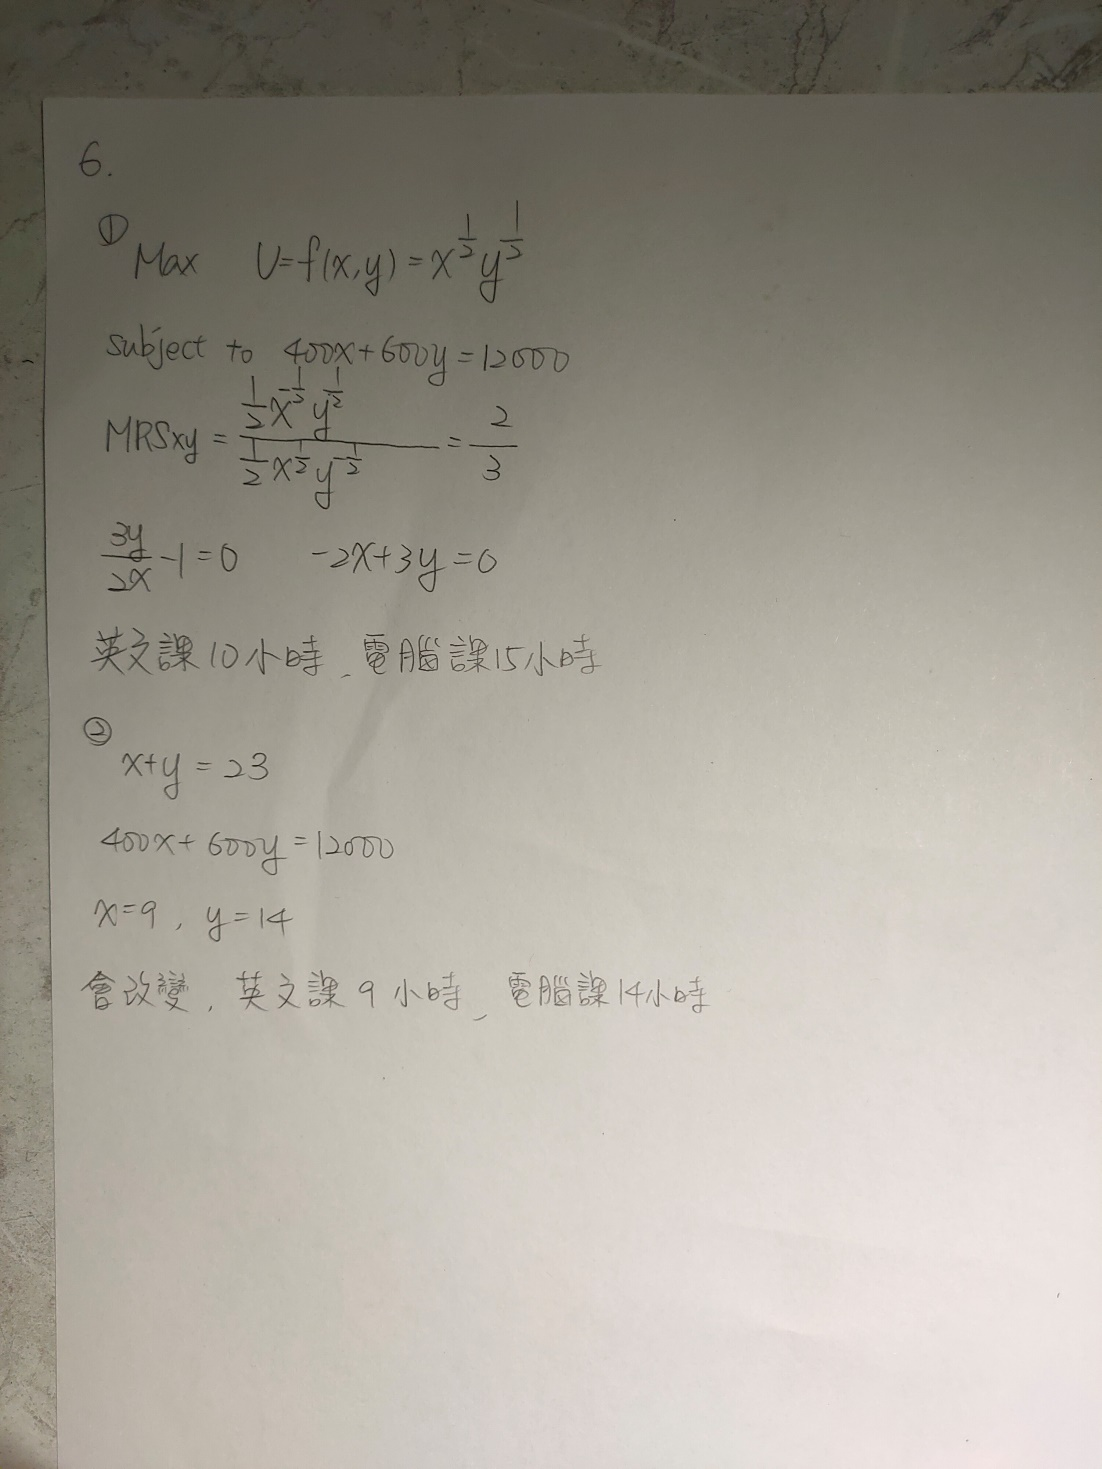 6.
① Max U=f(x,y)=x^{1/2}y^{1/2}
subject to 400x+600y=12000
MRSxy = \frac{\frac{1}{2}x^{-\frac{1}{2}}y^{\frac{1}{2}}}{\frac{1}{2}x^{\frac{1}{2}}y^{-\frac{1}{2}}} = \frac{2}{3}
\frac{3y}{2x}-1=0 -2x+3y=0
英文課10小時、電腦課15小時
②
x+y=23
400x+600y=12000
x=9, y=14
會改變,英文課9小時、電腦課14小時